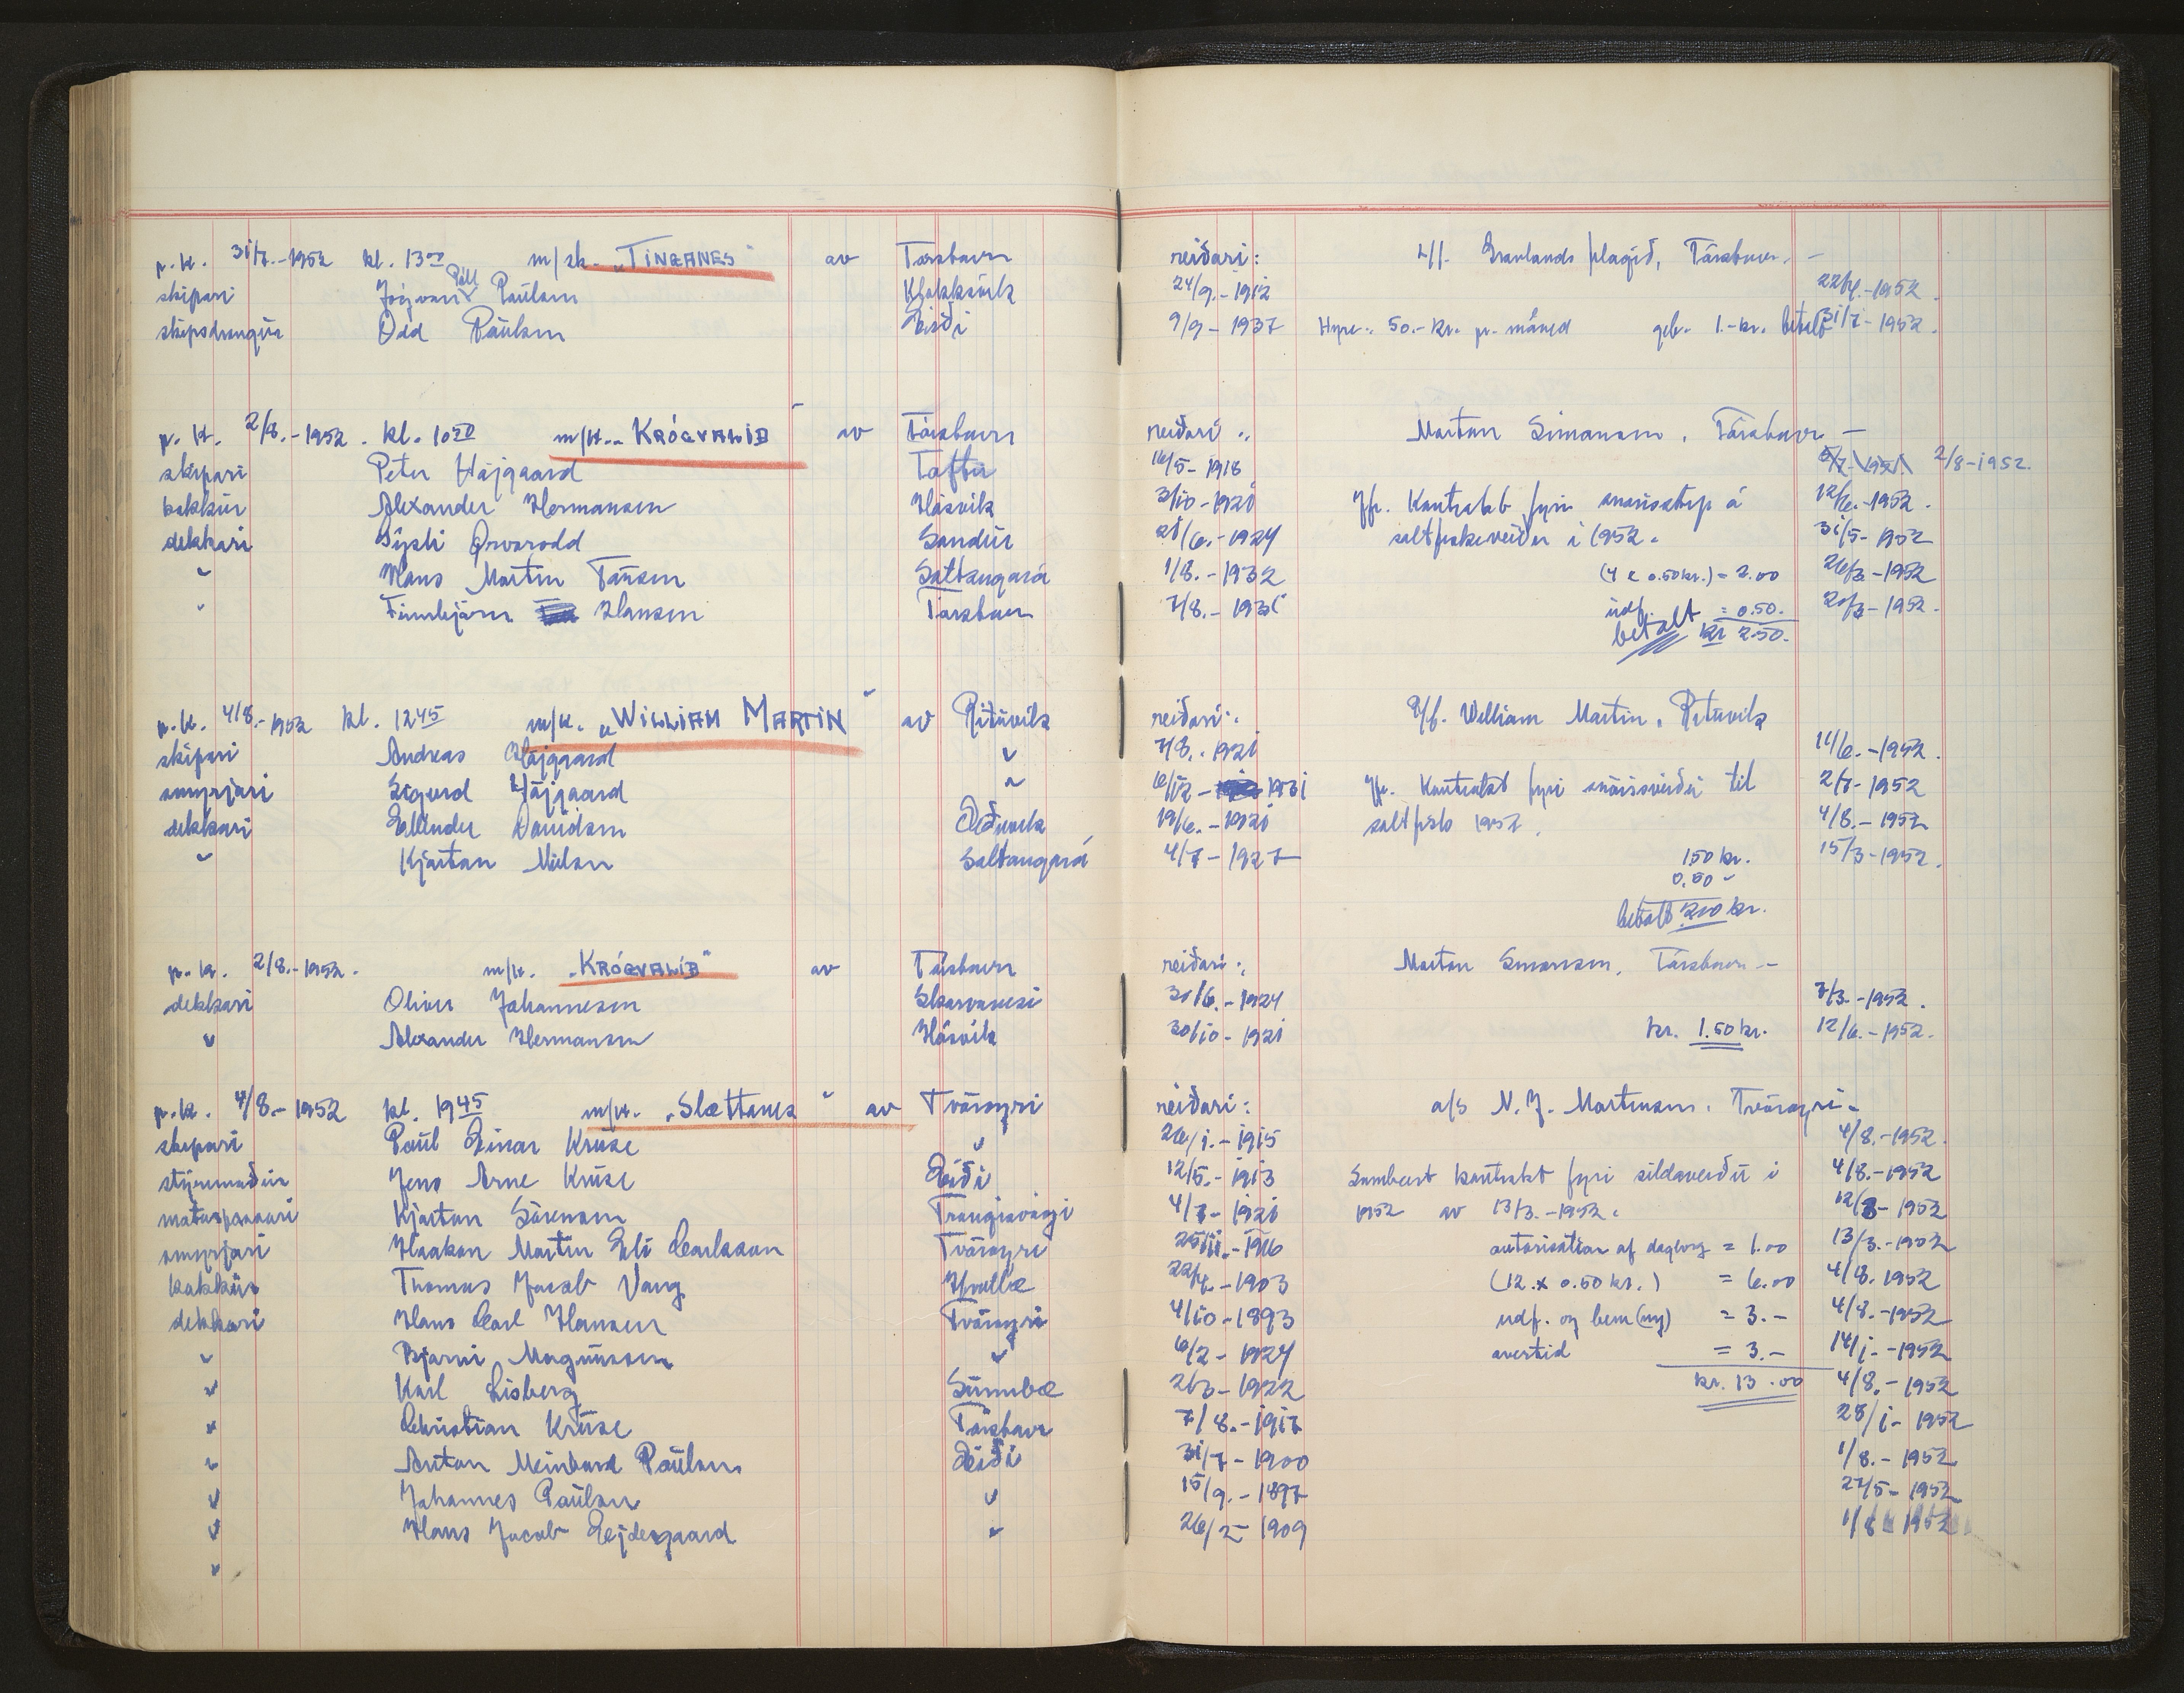 p.kl. 31/7.-1952 kl. 13.00 m/sk. „TINGANES" av Tórshavn reiðari: L/f. Grønlands felagið, Tórshavn. -
skipari Jógvan Páll Paulsen Klakksvík 24/9.-1912 22/4.-1952.
skipsdrongur Odd Paulsen Eiði 9/9-1937 Hyre: 50.-kr. pr. måned geb. 1.-kr. betalt 31/7-1952.
p.kl. 2/8.-1952. kl. 10 m/k. „KRÓGVALIÐ" av Tórshavn reiðari: Morten Simonsen, Tórshavn -
skipari Peter Højgaard Toftir 16/5-1918 2/8-1952.
kokkur Alexander Hermansen Húsvík 3/10-1921 Jfr. Kontrakt fyri snørisskip á 12/6.-1952.
dekkari Gysli Ørvarodd Sandur 28/6.-1924 saltfiskaveiðu í 1952. 31/5-1952
" Hans Martin Tausen Saltangará 1/8.-1932 (4 x 0.50 kr.) = 2.00 26/3-1952
" Finnbjørn Hansen Tórshavn 7/8.-1931 udf. = 0.50. 20/3-1952.
betalt kr 2.50.
p.kl. 4/8.-1952 kl. 12 45 m/k. „WILLIAM MARTIN" av Rituvík reiðari: P/f. William Martin, Rituvík
skipari Andreas Højgaard " 7/8.-1921 11/6.-1952.
smyrjari Sigurd Højgaard " 6/12-1931 Jfr. Kontrakt fyri snørisveiðu til 2/7-1952
dekkari Erlendur Davidsen Æðuvík 19/6.-1921 saltfisk 1952. 4/8.-1952
" Kjartan Nielsen Saltangará 4/7-1927 1.50 kr. 15/3-1952.
0.50 "
betalt 2.00 kr.
p.kl. 2/8.-1952. m/k. „KRÓGVALIÐ" av Tórshavn reiðari: Morten Simonsen, Tórshavn -
dekkari Oliver Johannesen Skarvanesi 30/6.-1924 7/3.-1952.
" Alexander Hermansen Húsvík 30/10-1921 kr. 1.50 kr. 12/6.-1952.
p.kl. 4/8.-1952 kl. 19 45 m/k. „Slættanes" av Tvøroyri reiðari: a/s N. J. Mortensen, Tvøroyri -
skipari Paul Einar Kruse " 26/1.-1915 4/8.-1952.
stýrimaður Jens Arne Kruse Eiði 12/5.-1913 Sambært kontrakt fyri sildaveiðu í 4/8.-1952
Kjartan Sørensen Trongisvági 4/7-1921 1952 av 13/3.-1952. 12/3-1952
smyrjari Haakon Martin Eli Carlsson Tvøroyri 25/11.-1916 autorisation af dagborg = 1.00 13/3.-1952
kokkur Thomas Jacob Vang Hvalba 22/4.-1903 (12 x 0.50 kr.) = 6.00 4/8.1952
dekkari Hans Carl Hansen Tvøroyri 4/10-1893 udf. og bem(ny) = 3.- 4/8.-1952
" Bjarni Magnussen " 6/2-1924 overtid = 3.- 14/1.-1952
" Karl Lisberg Sumba 2/3-1922 kr. 13.00 4/8.-1952
" Christian Kruse Tórshavn 7/8.-1917 28/1-1952
" Anton Meinhard Paulsen Eiði 31/7-1900 1/8.-1952
" Johannes Paulsen " 15/9.-1897 27/5-1952
" Hans Jacob Eejdesgaard " 26/2-1909 1/8-1952
"